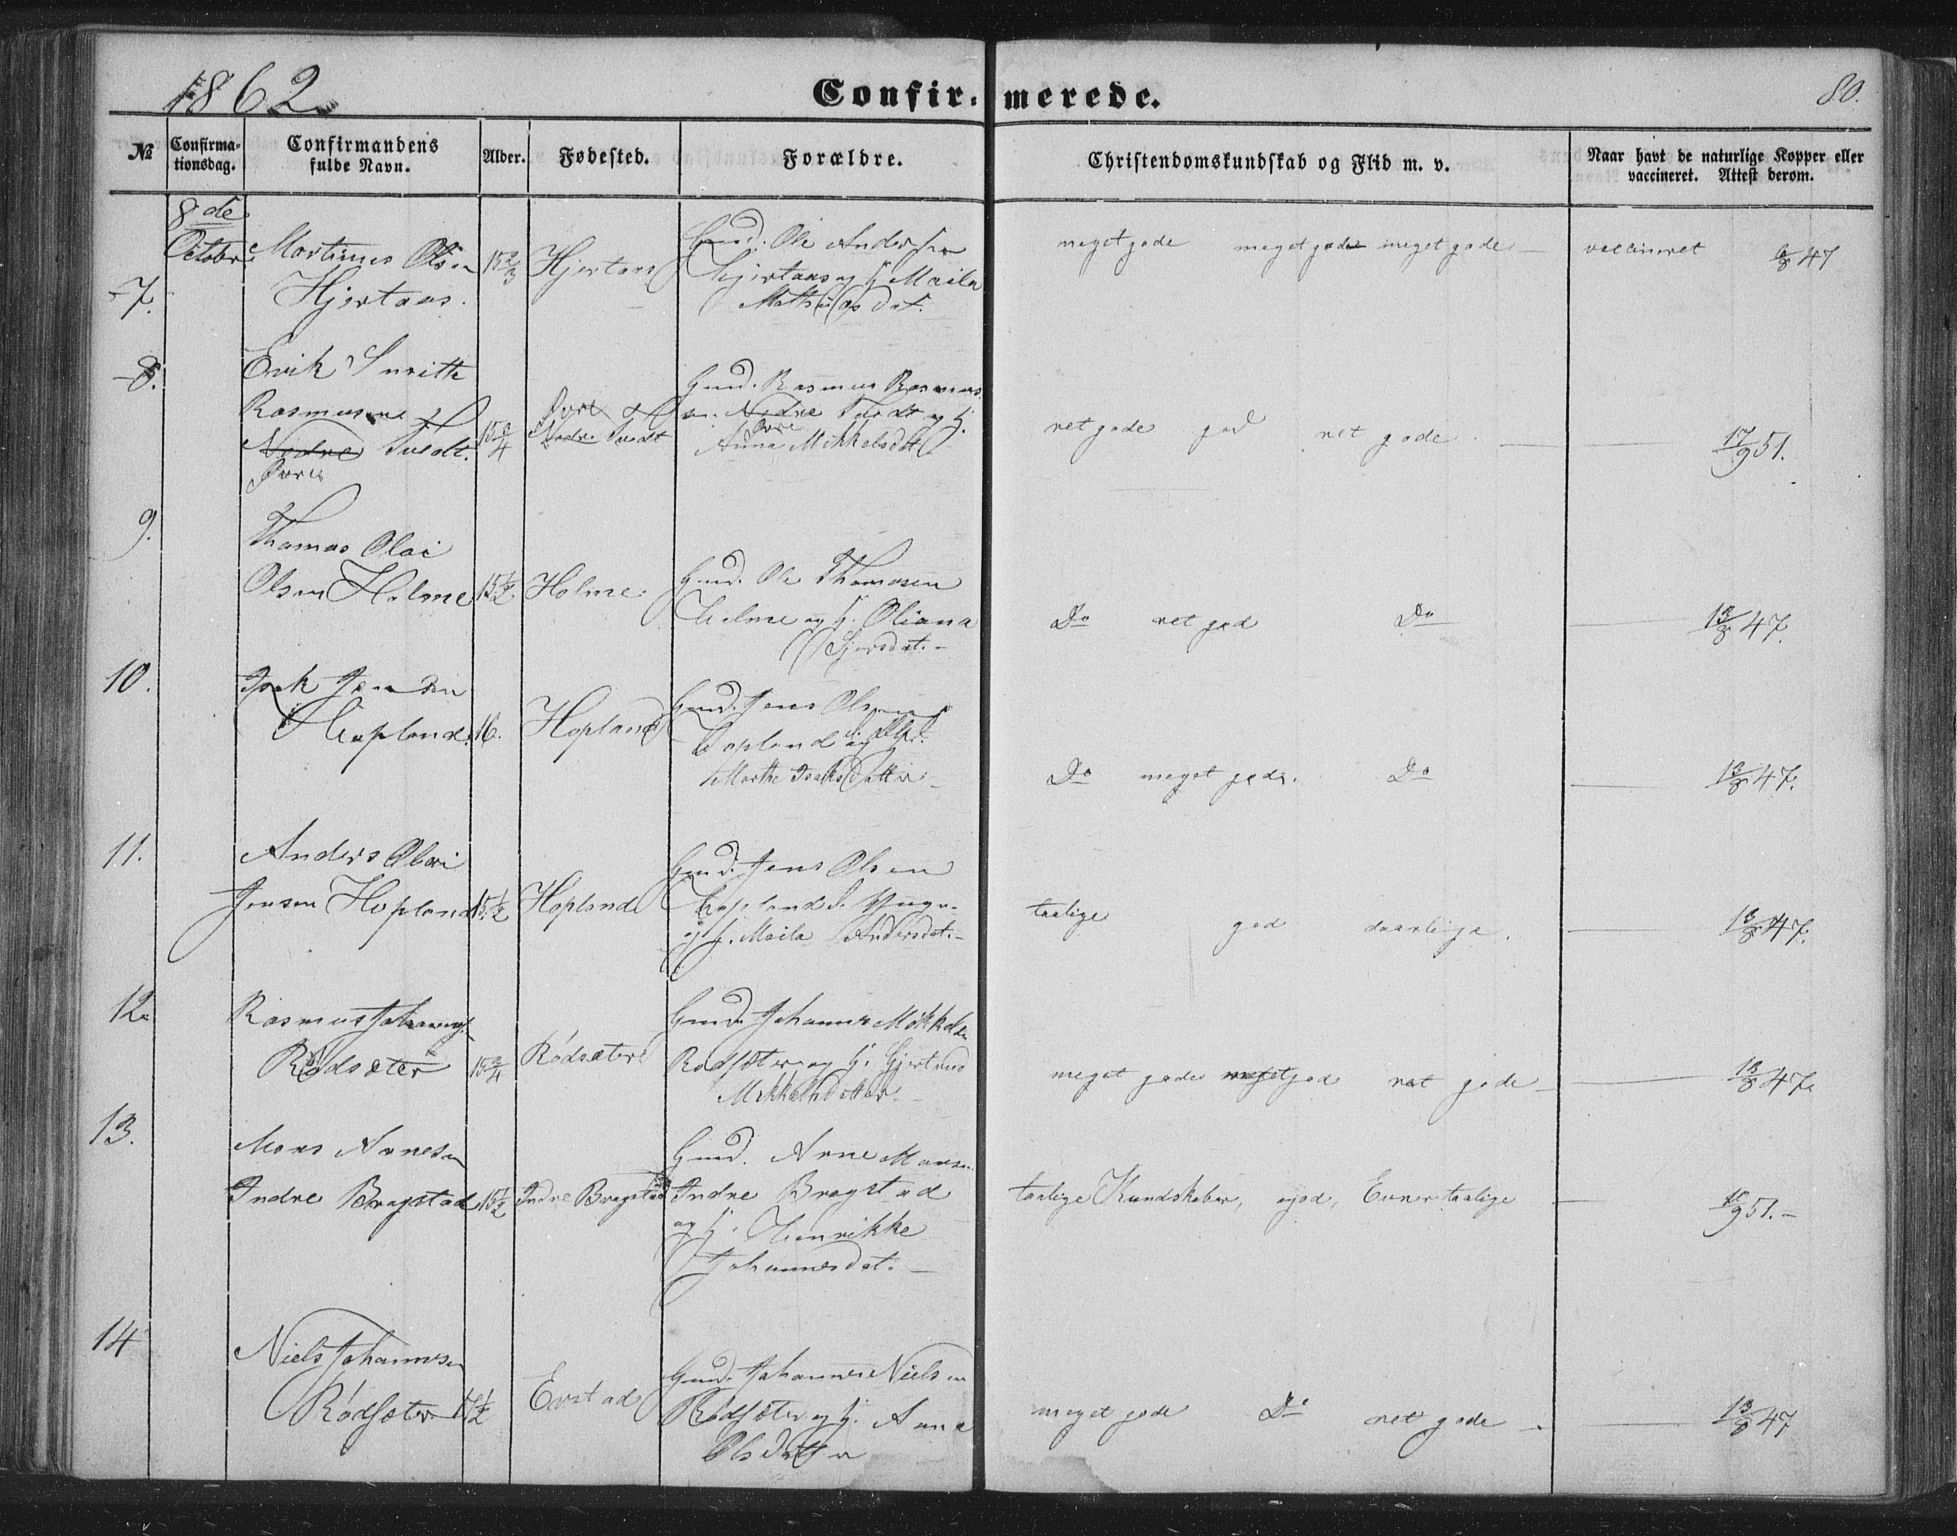 1862
Confir= merede.
80.
№
Confirma-
tionsdag.
Confirmandens
fulde Navn.
Alder.
Fødested.
Forældre.
Christendomskundskab og Flid m. v.
Naar havt de naturlige Kopper eller
vaccineret. Attest derom.
8de
October
7.
Martinus Olsen
Hjertaas.
15 2/3
Hjertaas
Gmd. Ole Andersen
Hjertaas og H. Maila
Mathiasdat.
meget gode meget gode meget gode — vaccineret 6/8 47
8.
Erik Smith
Rasmussen
Nedre Tvedt.
Øvre
15 3/4
Øvre
Nedre Tvedt
Gmd. Rasmus Rasmus
sen Nedre Tvedt og H.
Øvre
Anna Mikkelsdat
ret gode god ret gode — 17/9 51.
9.
Thomas Olai
Olsen Holme
15 1/2
Holme
Gmd. Ole Thomasen
Holme og H. Oliana
Do ret god Do — 13/8 47.
10.
Isak Jensen
Hopland.
16.
Hopland
Gmd. Jens Olsen
Hopland og
Marthe Isaksdatter
Do meget gode. Do — 13/8 47.
11.
Anders Olai
Jensen Hopland
15 1/2
Hopland
Gmd. Jens Olsen
Hopland d. Yngre
og H. Maila Andersdat. –
taalige god daarlige. — 13/8 47.
12.
Rasmus Johannes.
Rødsæter
15 3/4
Rødsæter
Gmd. Johannes Mikkelsen
Rødsæter og H. Gjertrud
Mikkelsdatter –
meget gode meget god ret gode — 13/8 47.
13.
Mons Arnesen
Indre Brægstad
15 1/2
Indre Brægstad
Gmd. Arne Monsen
Indre Brægstad
og H. Henrikke
Johannesdat. –
taalige Kundskaber, god, Evner taalige — 16/9 51. –
14
Niels Johannesen
Rødsæter
15 1/2
Evstad
Gmd. Johannes Nielsen
Rødsæter og H. Anna
Olsdatter
meget gode Do ret gode — 13/8 47